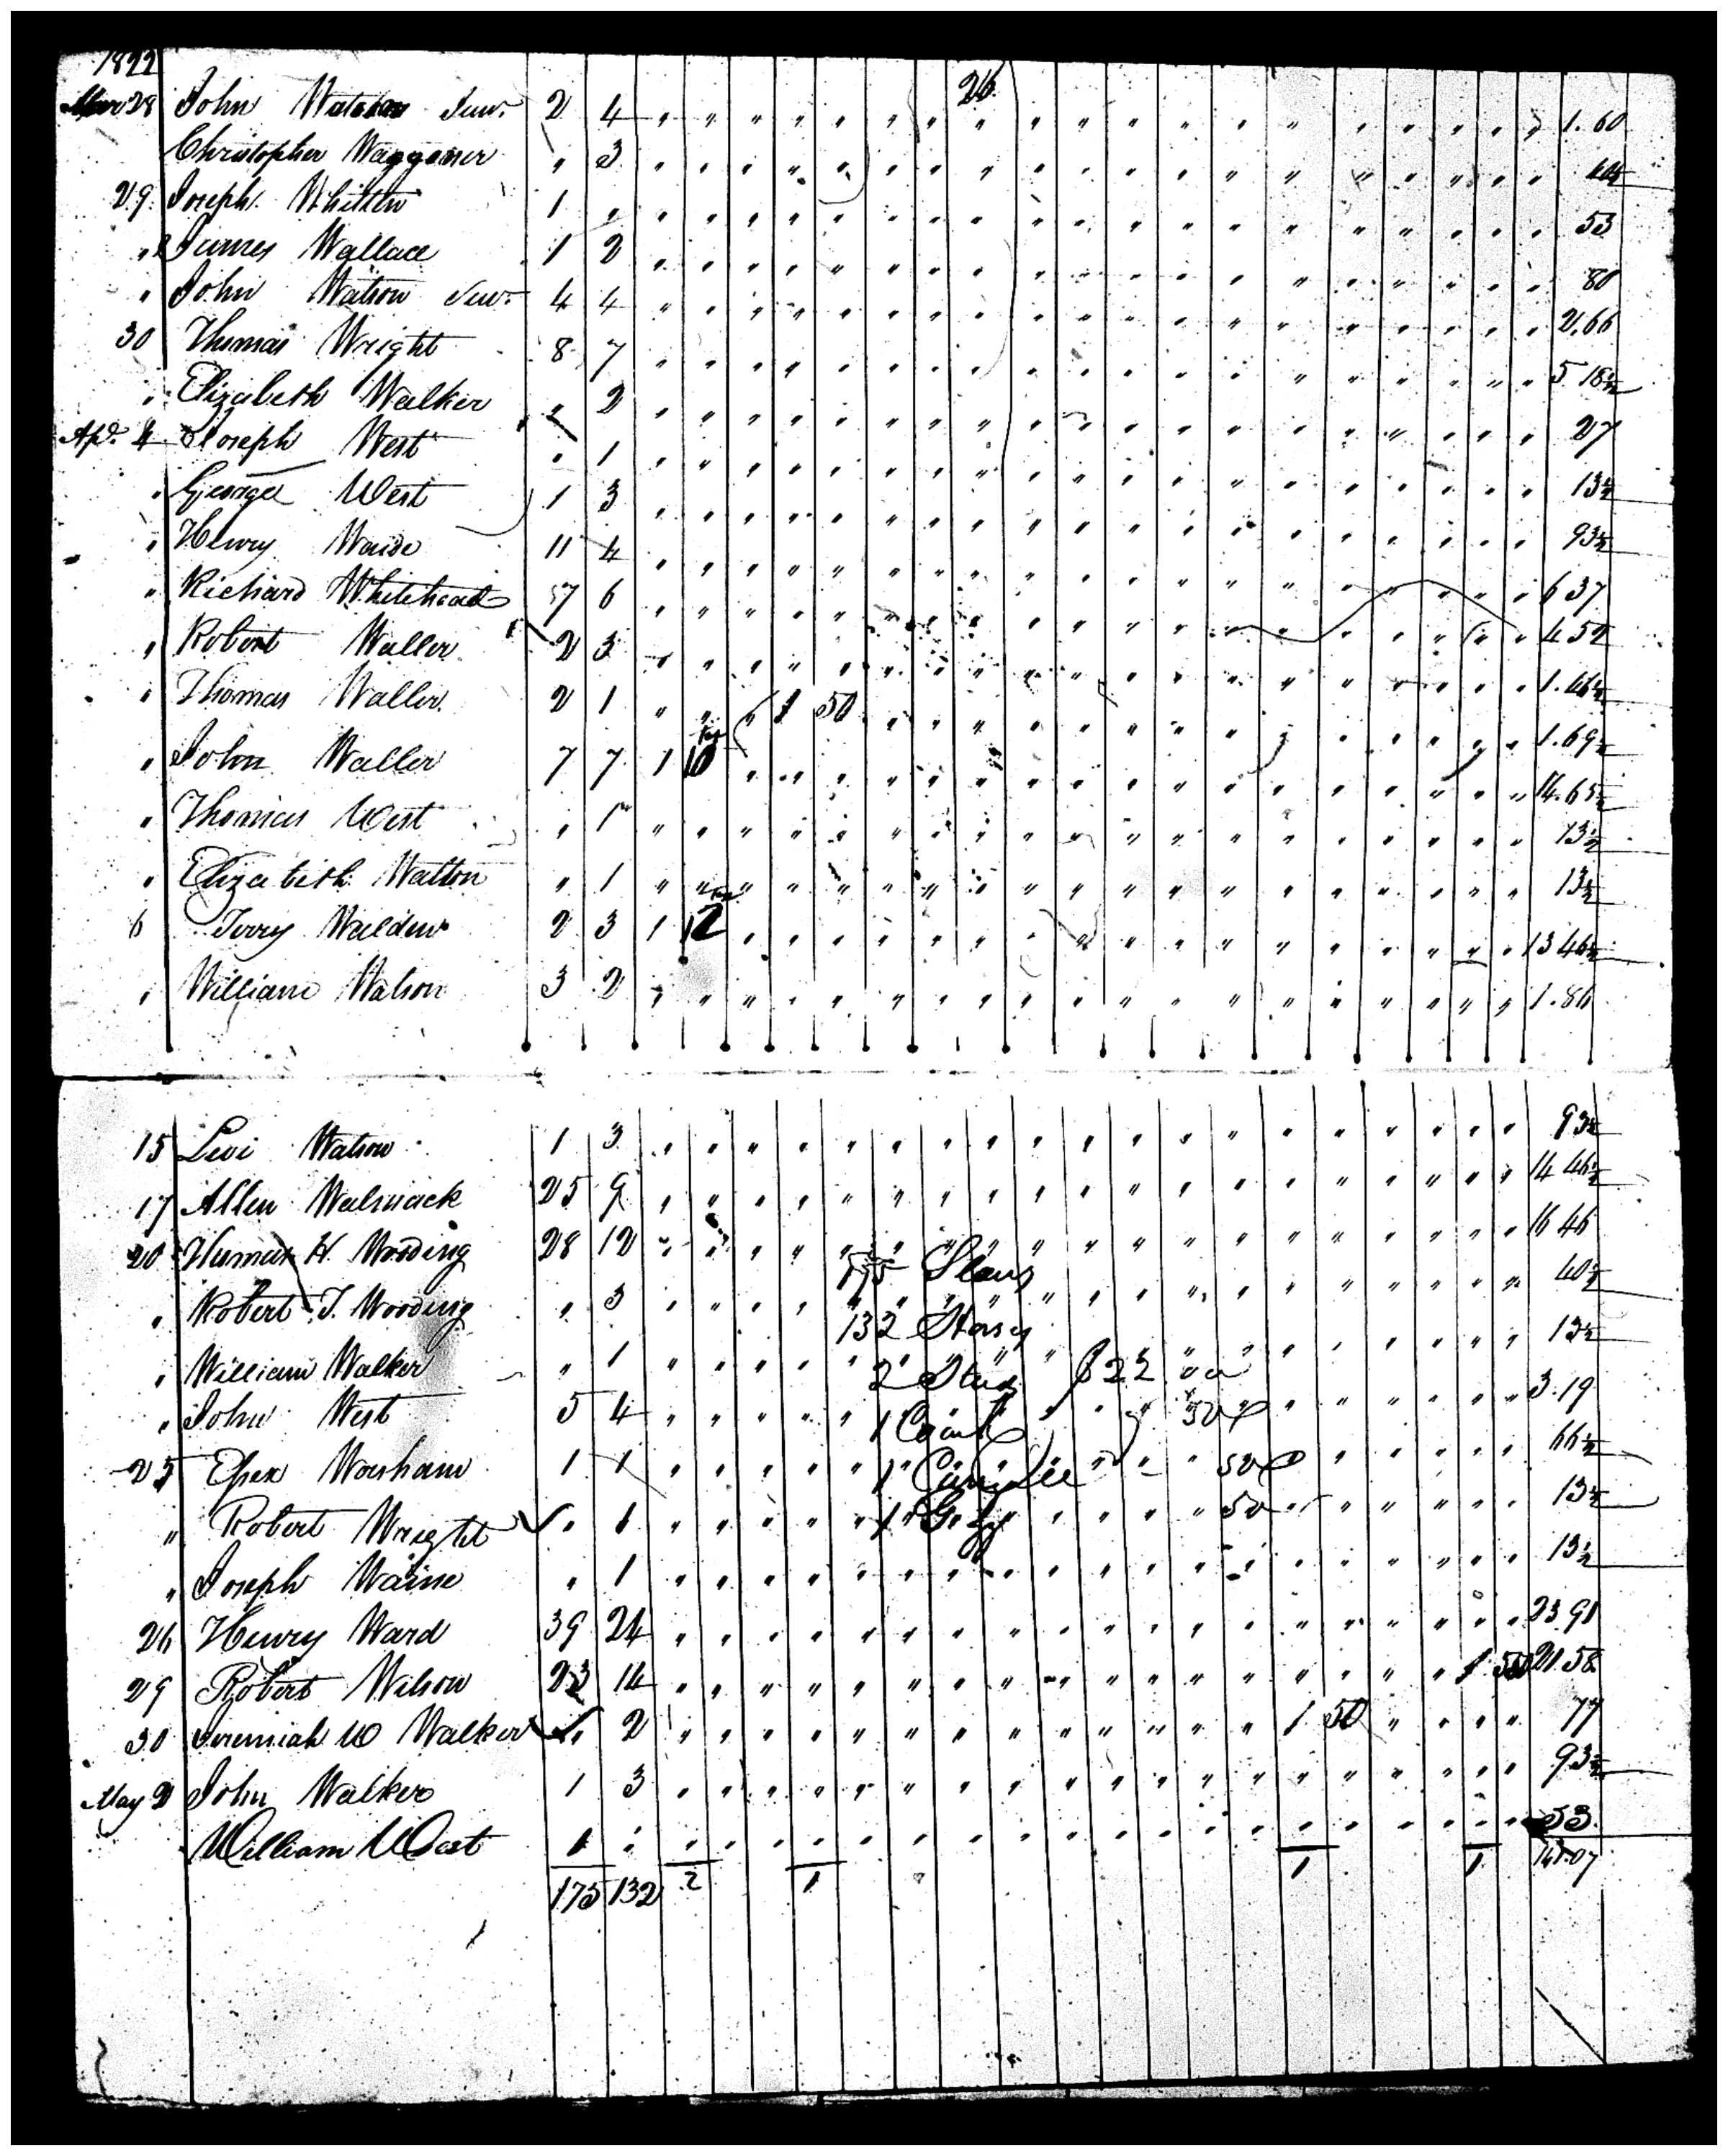 1822
26
Mar 28 John Watson Junr. 2 4 " " " " " " " " " " " " " " " " " " " 1.60
Christopher Waggoner " 3 " " " " " " " " " " " " " " " " " " " 40½
29 Joseph Whitten 1 " " " " " " " " " " " " " " " " " " " " 53
" James Wallace 1 2 " " " " " " " " " " " " " " " " " " " 80
" John Watson 4 4 " " " " " " " " " " " " " " " " " " " 2.66
30 Thomas Wright 8 7 " " " " " " " " " " " " " " " " " " " 5 18½
" Elizabeth Walker " 2 " " " " " " " " " " " " " " " " " " " 27
Apl. 4 Joseph West " 1 " " " " " " " " " " " " " " " " " " " 13½
" George West 1 3 " " " " " " " " " " " " " " " " " " " 93½
" Henry Wade 11 4 " " " " " " " " " " " " " " " " " " " 6 37
" Richard Whitehead 7 6 " " " " " " " " " " " " " " " " " " " 4 52
" Robert Waller 2 3 " " " " " " " " " " " " " " " " " " " 1.46½
" Thomas Waller 2 1 " " " 1 50 " " " " " " " " " " " " " " 1.69½
" John Waller 7 7 1 10 " " " " " " " " " " " " " " " " " 14.65½
" Thomas West " 1 " " " " " " " " " " " " " " " " " " " 13½
" Elizabeth Walton " 1 " " " " " " " " " " " " " " " " " " " 13½
6 Terry Walden 2 3 1 12 " " " " " " " " " " " " " " " " " 13 46½
" William Watson 3 2 " " " " " " " " " " " " " " " " " " " 1.86
15 Levi Watson 1 3 " " " " " " " " " " " " " " " " " " " 93½
17 Allen Walmack 25 9 " " " " " " " " " " " " " " " " " " " 14 46½
20 Thomas H. Wooding 28 12 " " " " " " " " " " " " " " " " " " " 16 46
175 Slaves
" Robert T. Wooding " 3 " " " " " " " " " " " " " " " " " " " 40½
132 Horses
" William Walker " 1 " " " " " " " " " " " " " " " " " " " 13½
2 Studs $22 00
" John West 5 4 " " " " " " " " " " " " " " " " " " " 3.19
1 50
25 Essex Worsham 1 1 " " " " " " " " " " " " " " " " " " " 66½
1 Carryalee 50
" Robert Wright " 1 " " " " " " " " " " " " " " " " " " " 13½
1 Gigg 50
" Joseph Waine " 1 " " " " " " " " " " " " " " " " " " " 13½
26 Henry Ward 39 24 " " " " " " " " " " " " " " " " " " " 23 91
29 Robert Wilson 23 14 " " " " " " " " " " " " " " " " " 1 50 21.58
30 Jeremiah W Walker " 2 " " " " " " " " " " " " " 1 50 " " " " 77
May 2 John Walker 1 3 " " " " " " " " " " " " " " " " " " " 93½
William West 1 " " " " " " " " " " " " " " " " " " " " 53
175 132 2 1 1 1